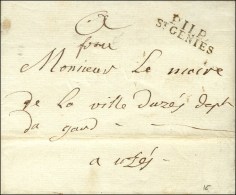 A
P.11.P.
ST GENIES
pour
Monsieur le maire
de la ville duzès dept
du gard
a uzès